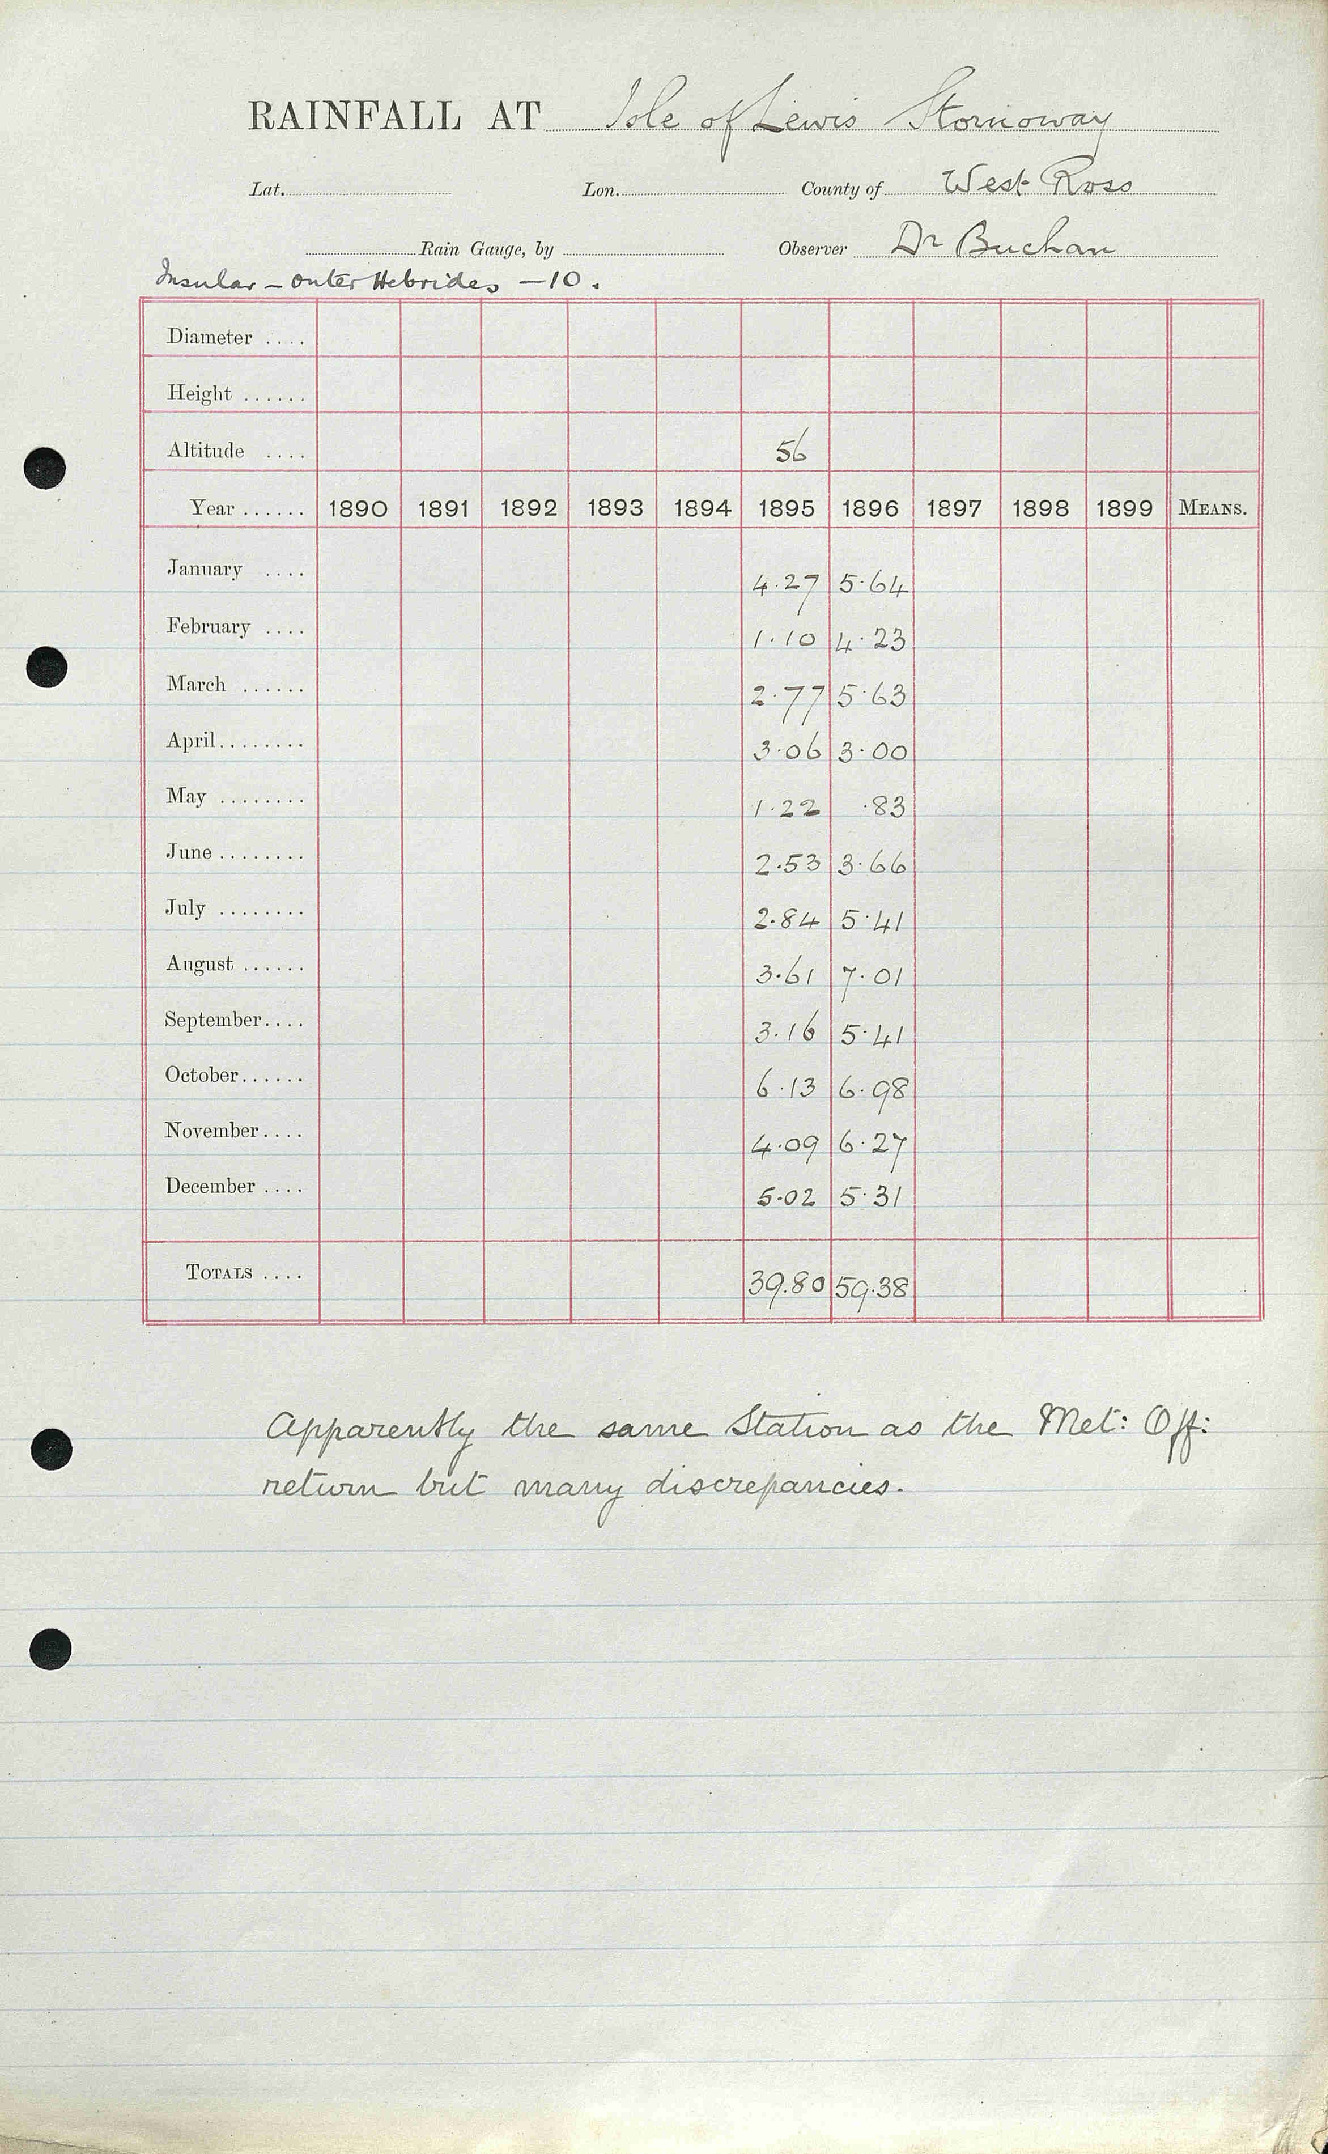 RAINFALL AT Isle of Lewis Stornoway
Lat. Lon. County of West Ross
Rain Gauge, by Observer Dr Buchan
Insular – Outer Hebrides – 10.
Diameter ....
Height ......
Altitude .... 56
Year ...... 1890 1891 1892 1893 1894 1895 1896 1897 1898 1899 MEANS.
January .... 4.27 5.64
February .... 1.10 4.23
March ...... 2.77 5.63
April........ 3.06 3.00
May ........ 1.22 .83
June ........ 2.53 3.66
July ........ 2.84 5.41
August ...... 3.61 7.01
September.... 3.16 5.41
October...... 6.13 6.98
November.... 4.09 6.27
December .... 5.02 5.31
TOTALS .... 39.80 59.38
Apparently the same Station as the Met: Off:
return but many discrepancies.